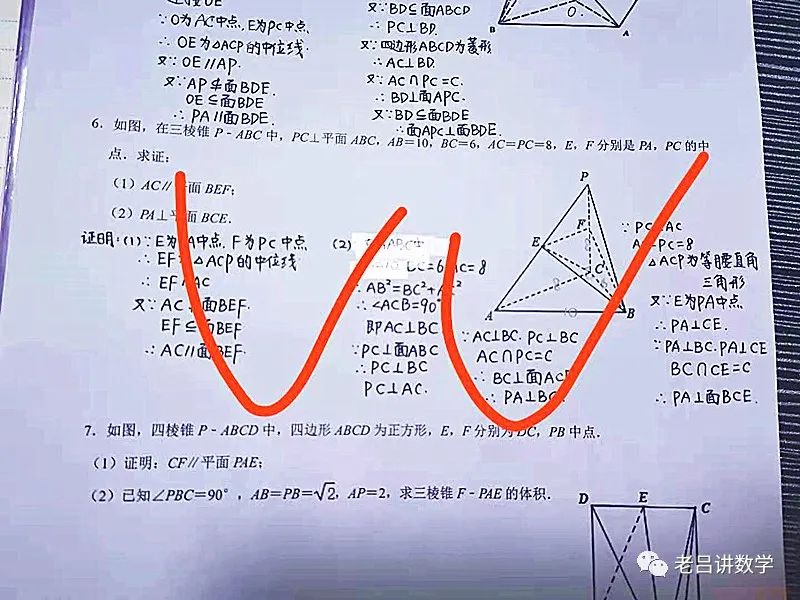 ∵O为AC中点, E为PC中点
∴ OE为△ACP的中位线
又∵ OE∥AP.
又∵ AP⊄面BDE.
OE⊆面BDE
∴ PA∥面BDE.
又∵BD⊆面ABCD
∴ PC⊥BD.
又∵四边形ABCD为菱形
∴ AC⊥BD.
又∵ AC∩PC=C.
∴ BD⊥面APC.
又∵BD⊆面BDE
∴面APC⊥面BDE.
B
O
A
6. 如图，在三棱锥 P－ABC 中，PC⊥平面 ABC，AB=10，BC=6，AC=PC=8，E，F 分别是 PA，PC 的中
点．求证：
（1）AC∥平面 BEF；
（2）PA⊥平面 BCE．
证明:(1)∵E为PA中点, F为PC中点
∴ EF为△ACP的中位线
∴ EF∥AC
又∵ AC⊄面BEF
EF⊆面BEF
∴ AC∥面BEF
(2)
BC=6 AC=8
∴AB²=BC²+AC²
∴∠ACB=90°
即AC⊥BC
∵PC⊥面ABC
∴PC⊥BC
PC⊥AC.
P
F
E
8
C
8
6
A
10
B
∵AC⊥BC. PC⊥BC
AC∩PC=C
∴ BC⊥面ACP
∴ PA⊥BC.
∵ PC⊥AC
AC=PC=8
∴△ACP为等腰直角
三角形
又∵E为PA中点
∴ PA⊥CE.
∵PA⊥BC.PA⊥CE
BC∩CE=C
∴ PA⊥面BCE.
7. 如图，四棱锥 P－ABCD 中，四边形 ABCD 为正方形，E，F 分别为 DC，PB 中点．
（1）证明：CF∥平面 PAE；
（2）已知∠PBC=90°，AB=PB=√2，AP=2，求三棱锥 F－PAE 的体积．
D
E
C
老吕讲数学